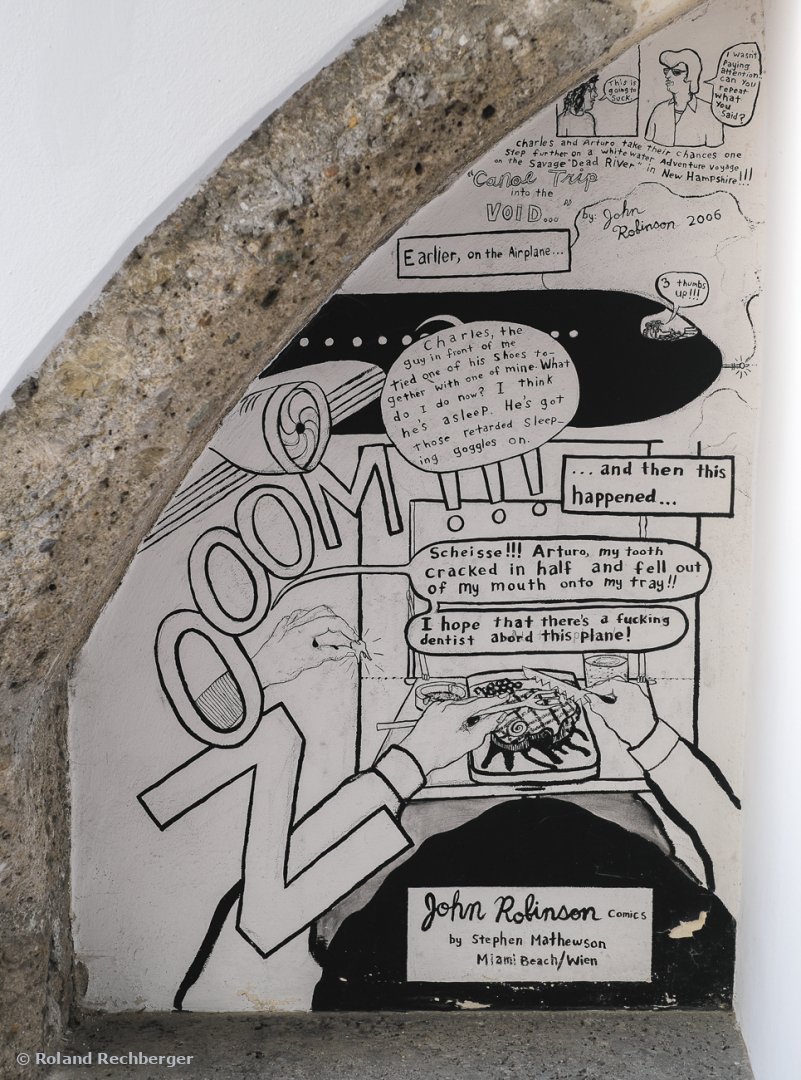 This is
going to
SUCK.
I wasn't
Paying
attention...
can you
repeat
what
you
said?
Charles and Arturo take their chances one
Step further on a white water Adventure Voyage
on the Savage "Dead River" in New Hampshire!!!
"Canoe Trip
into the
VOID..."
by: John
Robinson 2006
Earlier, on the Airplane...
3 thumbs
up!!!
Charles, the
guy in front of me
tied one of his shoes to-
gether with one of mine. What
do I do now? I think
he's asleep. He's got
those retarded sleep-
ing goggles on.
...and then this
happened...
ZOOOOM!!!
Scheisse!!! Arturo, my tooth
cracked in half and fell out
of my mouth onto my tray!!
I hope that there's a fucking
dentist abord this plane!
John Robinson Comics
by Stephen Mathewson
Miami Beach/Wien
© Roland Rechberger